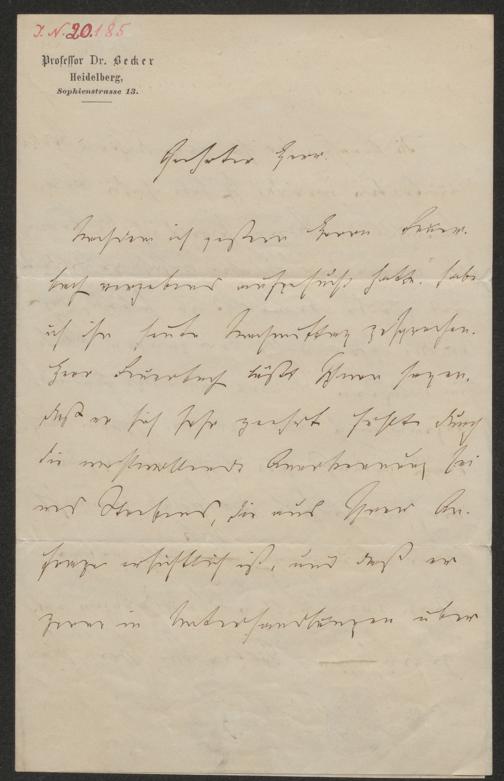 I. N. 20.185
Professor Dr. Becker
Heidelberg,
Sophienstrasse 13.
Geehrter Herr.
Nachdem ich gestern Herrn Feuer-
bach vergebens aufgesucht hatte, habe
ich ihn heute Nachmittag gesprochen.
Herr Feuerbach läßt Ihnen sagen,
daß er sich sehr geehrt fühlt durch
die wohlwollende Anerkennung sei
nes Strebens, die aus Ihrer An-
frage ersichtlich ist, und daß er
gerne in Unterhandlungen über